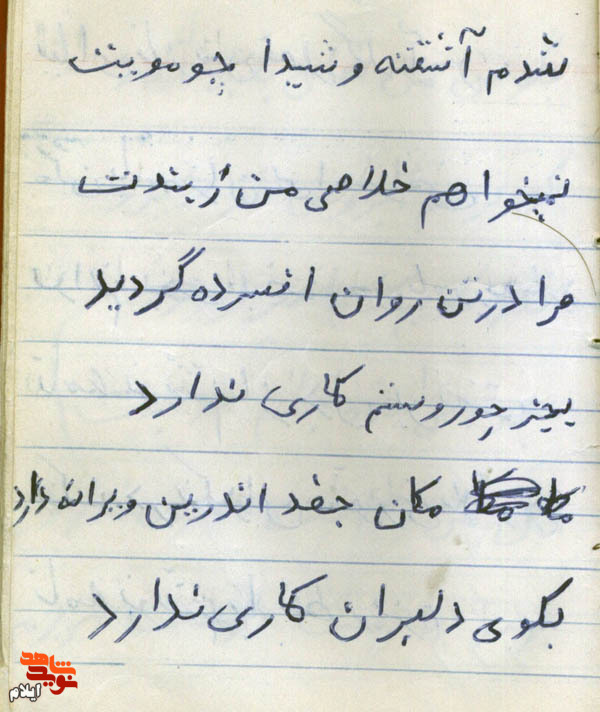 شدم آشفته و شیدا چو مویت
نمیخواهم خلاصی من ز بندت
مرا در تن روان افسرده گردید
بجز جور و ستم کاری ندارد
مکان جغد اندرین ویرانه دارد
بکوی دلبران کاری ندارد
نوید شاهد
ایلام